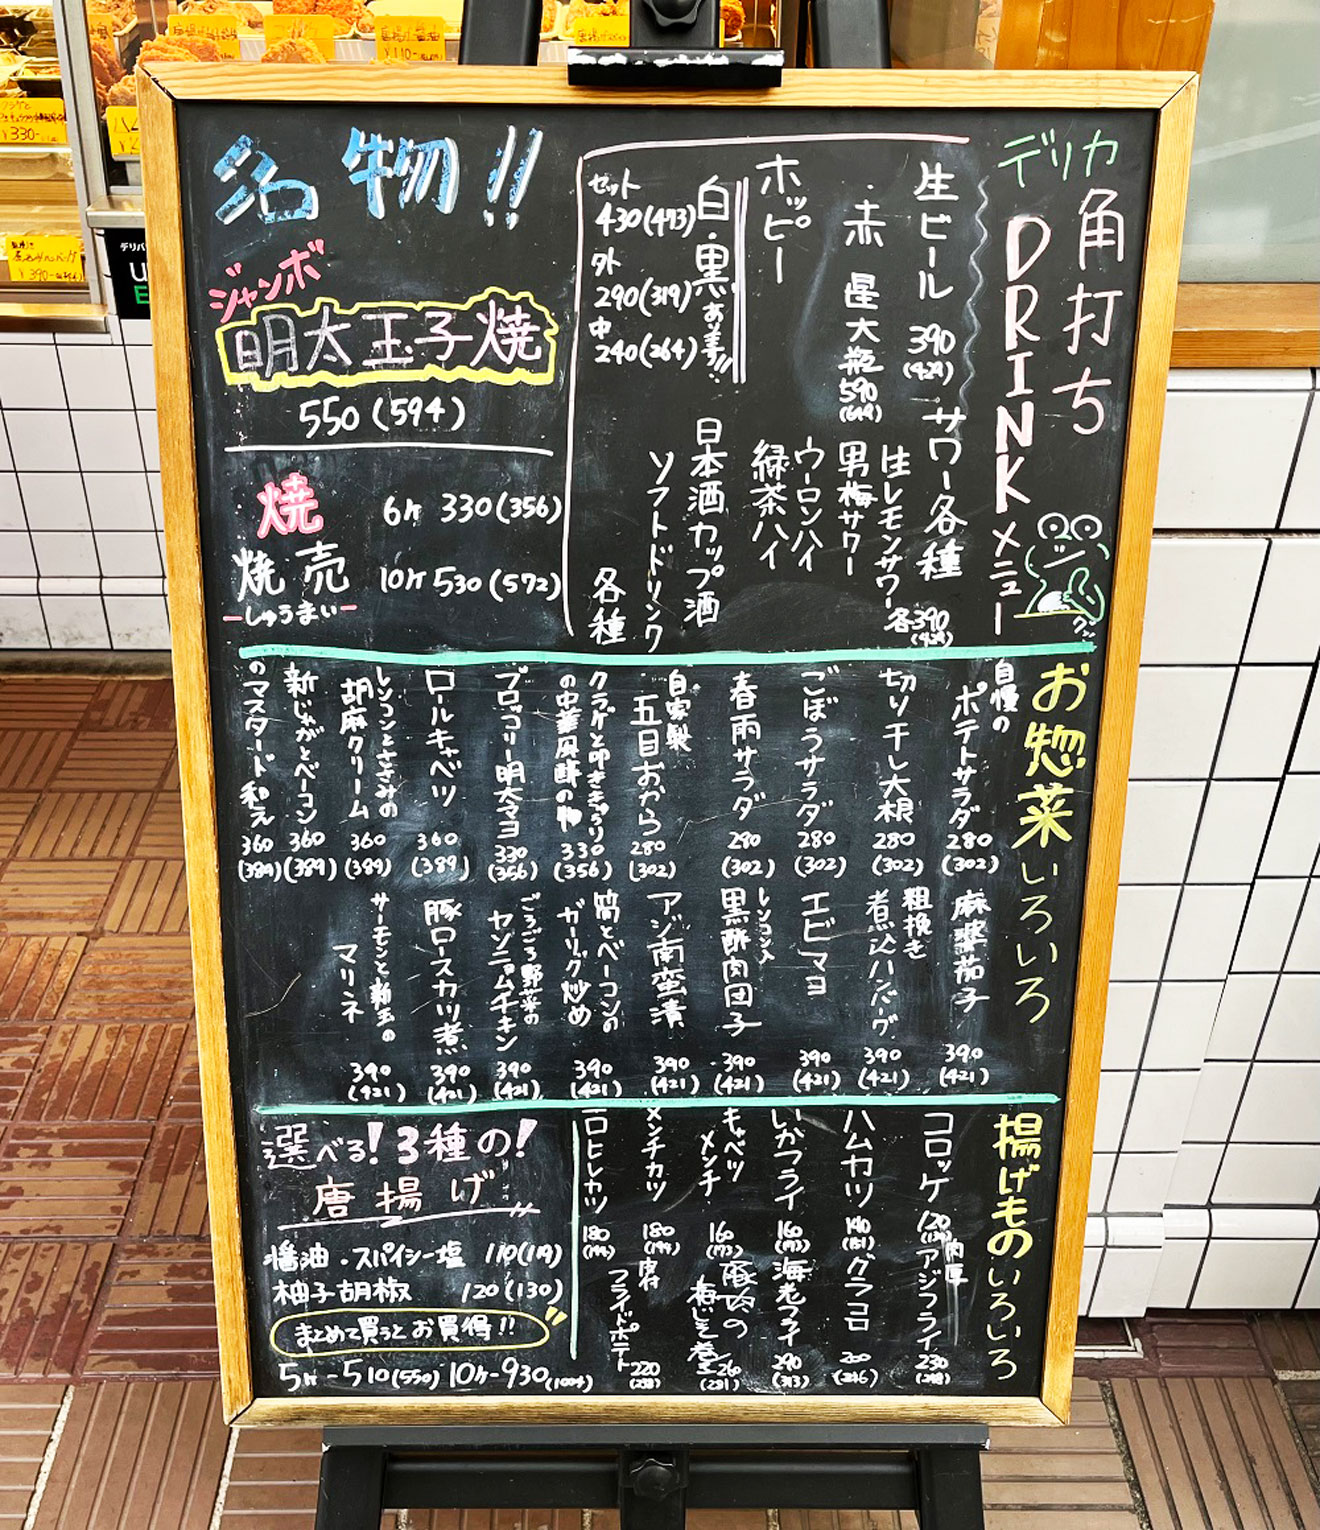 名物!!
ジャンボ
明太玉子焼
550(594)
焼
焼売
しゅうまい
6ケ 330(356)
10ケ 530(572)
デリカ
角打ち
DRINKメニュー
グッ
生ビール 390
(429)
・赤 星大瓶 590
(649)
ホッピー
白・黒あ〼!!
セット
430(473)
外
290(319)
中
240(264)
サワー各種
生レモンサワー
男梅サワー
各390
(429)
ウーロンハイ
緑茶ハイ
日本酒カップ酒
ソフトドリンク
各種
お惣菜いろいろ
自慢の
ポテトサラダ 280
(302)
切り干し大根 280
(302)
ごぼうサラダ 280
(302)
春雨サラダ 280
(302)
自家製
五目おから 280
(302)
クラゲと叩ききゅうり
の中華風酢の物 330
(356)
ブロッコリー明太マヨ 330
(356)
ロールキャベツ 360
(389)
レンコンとささみの
胡麻クリーム 360
(389)
新じゃがとベーコン 360
(389)
のマスタード和え 360
(389)
麻婆茄子 390
(421)
粗挽き
煮込ハンバーグ 390
(421)
エビマヨ 390
(421)
レンコン入
黒酢肉団子 390
(421)
アジ南蛮漬 390
(421)
筍とベーコンの
ガーリック炒め 390
(421)
ごろごろ野菜の
ヤンニョムチキン 390
(421)
豚ロースカツ煮 390
(421)
サーモンと新玉の
マリネ 390
(421)
揚げものいろいろ
コロッケ 120
ハムカツ 140
(151)
いかフライ 160
(173)
キャベツ
メンチ 160
(173)
メンチカツ 180
(194)
一口ヒレカツ 180
(194)
肉厚
アジフライ 230
(248)
グラコロ 200
(216)
海老フライ 290
(313)
豚肉の
梅しそ巻 260
(281)
フライドポテト 220
(238)
選べる!3種の!
唐揚げ
醤油・スパイシー塩 110(119)
柚子胡椒 120(130)
まとめて買うとお買得!!
5ケ-510(550) 10ケ-930(1004)
¥330-
¥390-
¥110-